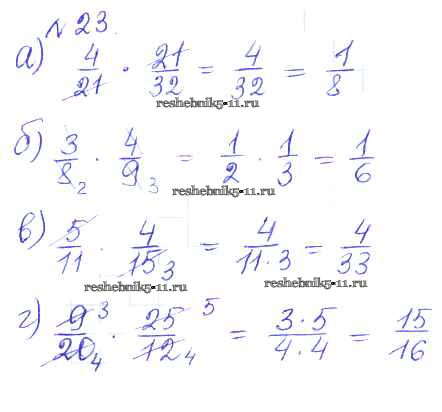 № 23.
а) 4/21 · 21/32 = 4/32 = 1/8
reshebnik5-11.ru
б) 3/8 2 · 4/9 3 = 1/2 · 1/3 = 1/6
reshebnik5-11.ru
в) 5/11 · 4/15 3 = 4/11·3 = 4/33
reshebnik5-11.ru
reshebnik5-11.ru
г) 9 3/20 4 · 25 5/12 4 = 3·5/4·4 = 15/16